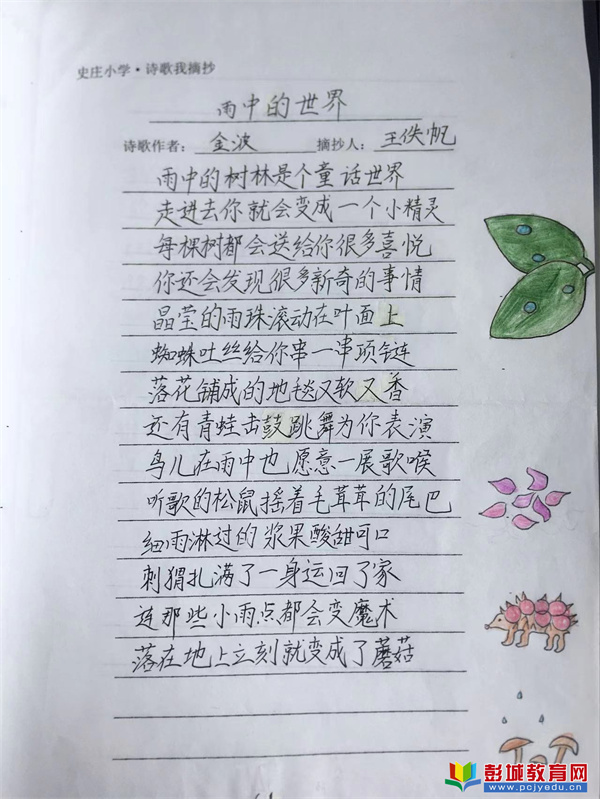 史庄小学·诗歌我摘抄
雨中的世界
诗歌作者: 金波 摘抄人: 王佚帆
雨中的树林是个童话世界
走进去你就会变成一个小精灵
每棵树都会送给你很多喜悦
你还会发现很多新奇的事情
晶莹的雨珠滚动在叶面上
蜘蛛吐丝给你串一串项链
落花铺成的地毯又软又香
还有青蛙击鼓跳舞为你表演
鸟儿在雨中也愿意一展歌喉
听歌的松鼠摇着毛茸茸的尾巴
细雨淋过的浆果酸甜可口
刺猬扎满了一身运回了家
连那些小雨点都会变魔术
落在地上立刻就变成了蘑菇
彭城教育网
www.pcjyedu.cn